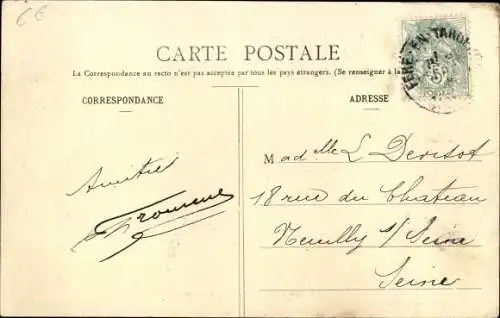 66
CARTE POSTALE
La Correspondance au recto n'est pas acceptée par tous les pays étrangers. (Se renseigner à la
CORRESPONDANCE
ADRESSE
FÈRE-EN-TARDENOIS
Amitiés
M ad elle L Devisot
18 rue du Château
Neuilly s/ Seine
Seine